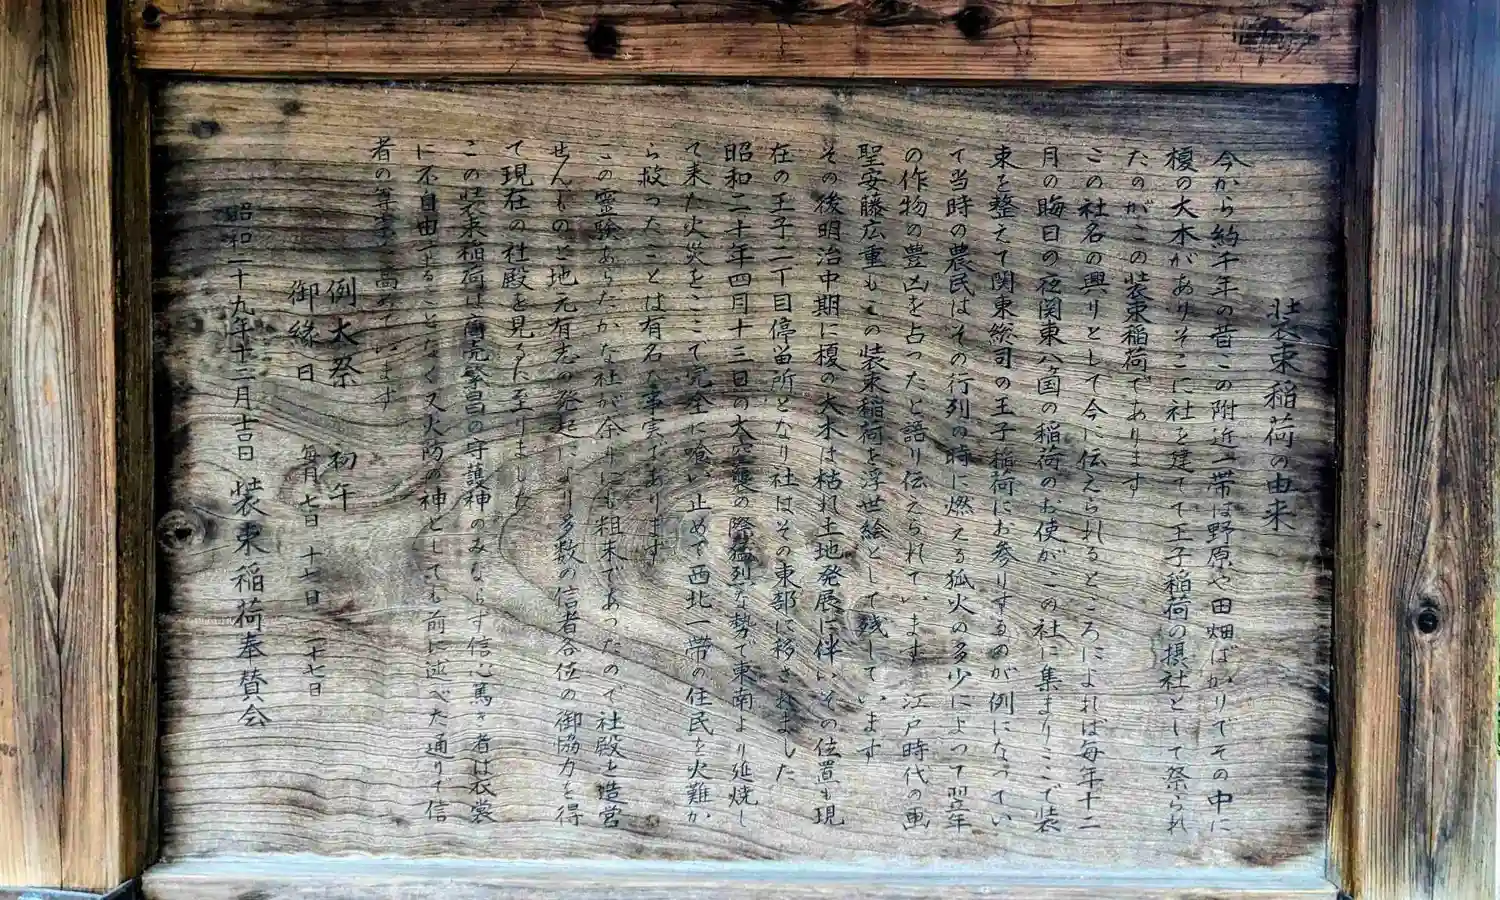 装束稲荷の由来
今から約千年の昔この附近一帯は野原や田畑ばかりでその中に
榎の大木がありそこに社を建てて王子稲荷の摂社として祭られ
たのがこの装束稲荷であります
この社名の興りとして今に伝えられるところによれば毎年十二
月の晦日の夜関東八ヶ国の稲荷のお使がこの社に集まりここで装
束を整えて関東総司の王子稲荷にお参りするのが例になってい
て当時の農民はその行列の時に燃える狐火の多少によって翌年
の作物の豊凶を占ったと語り伝えられています 江戸時代の画
聖安藤広重もこの装束稲荷を浮世絵として残しています
その後明治中期に榎の大木は枯れ土地発展に伴いその位置も現
在の王子二丁目停留所となり社はその東部に移されました
昭和二十年四月十三日の大空襲の際猛烈な勢で東南より延焼し
て来た火災をここで完全に喰い止めて西北一帯の住民を火難か
ら救ったことは有名な事実であります
この霊験あらたかな社が余りにも粗末であったので社殿を造営
せんものと地元有志の発起により多数の信者各位の御協力を得
て現在の社殿を見るに至りました
この装束稲荷は商売繁昌の守護神のみならず信心篤き者は衣裳
に不自由することなく又火防の神としても前に述べた通りで信
者の尊崇を高めています
例大祭 初午
御縁日 毎月 七日 十七日 二十七日
昭和二十九年十二月吉日 装束稲荷奉賛会